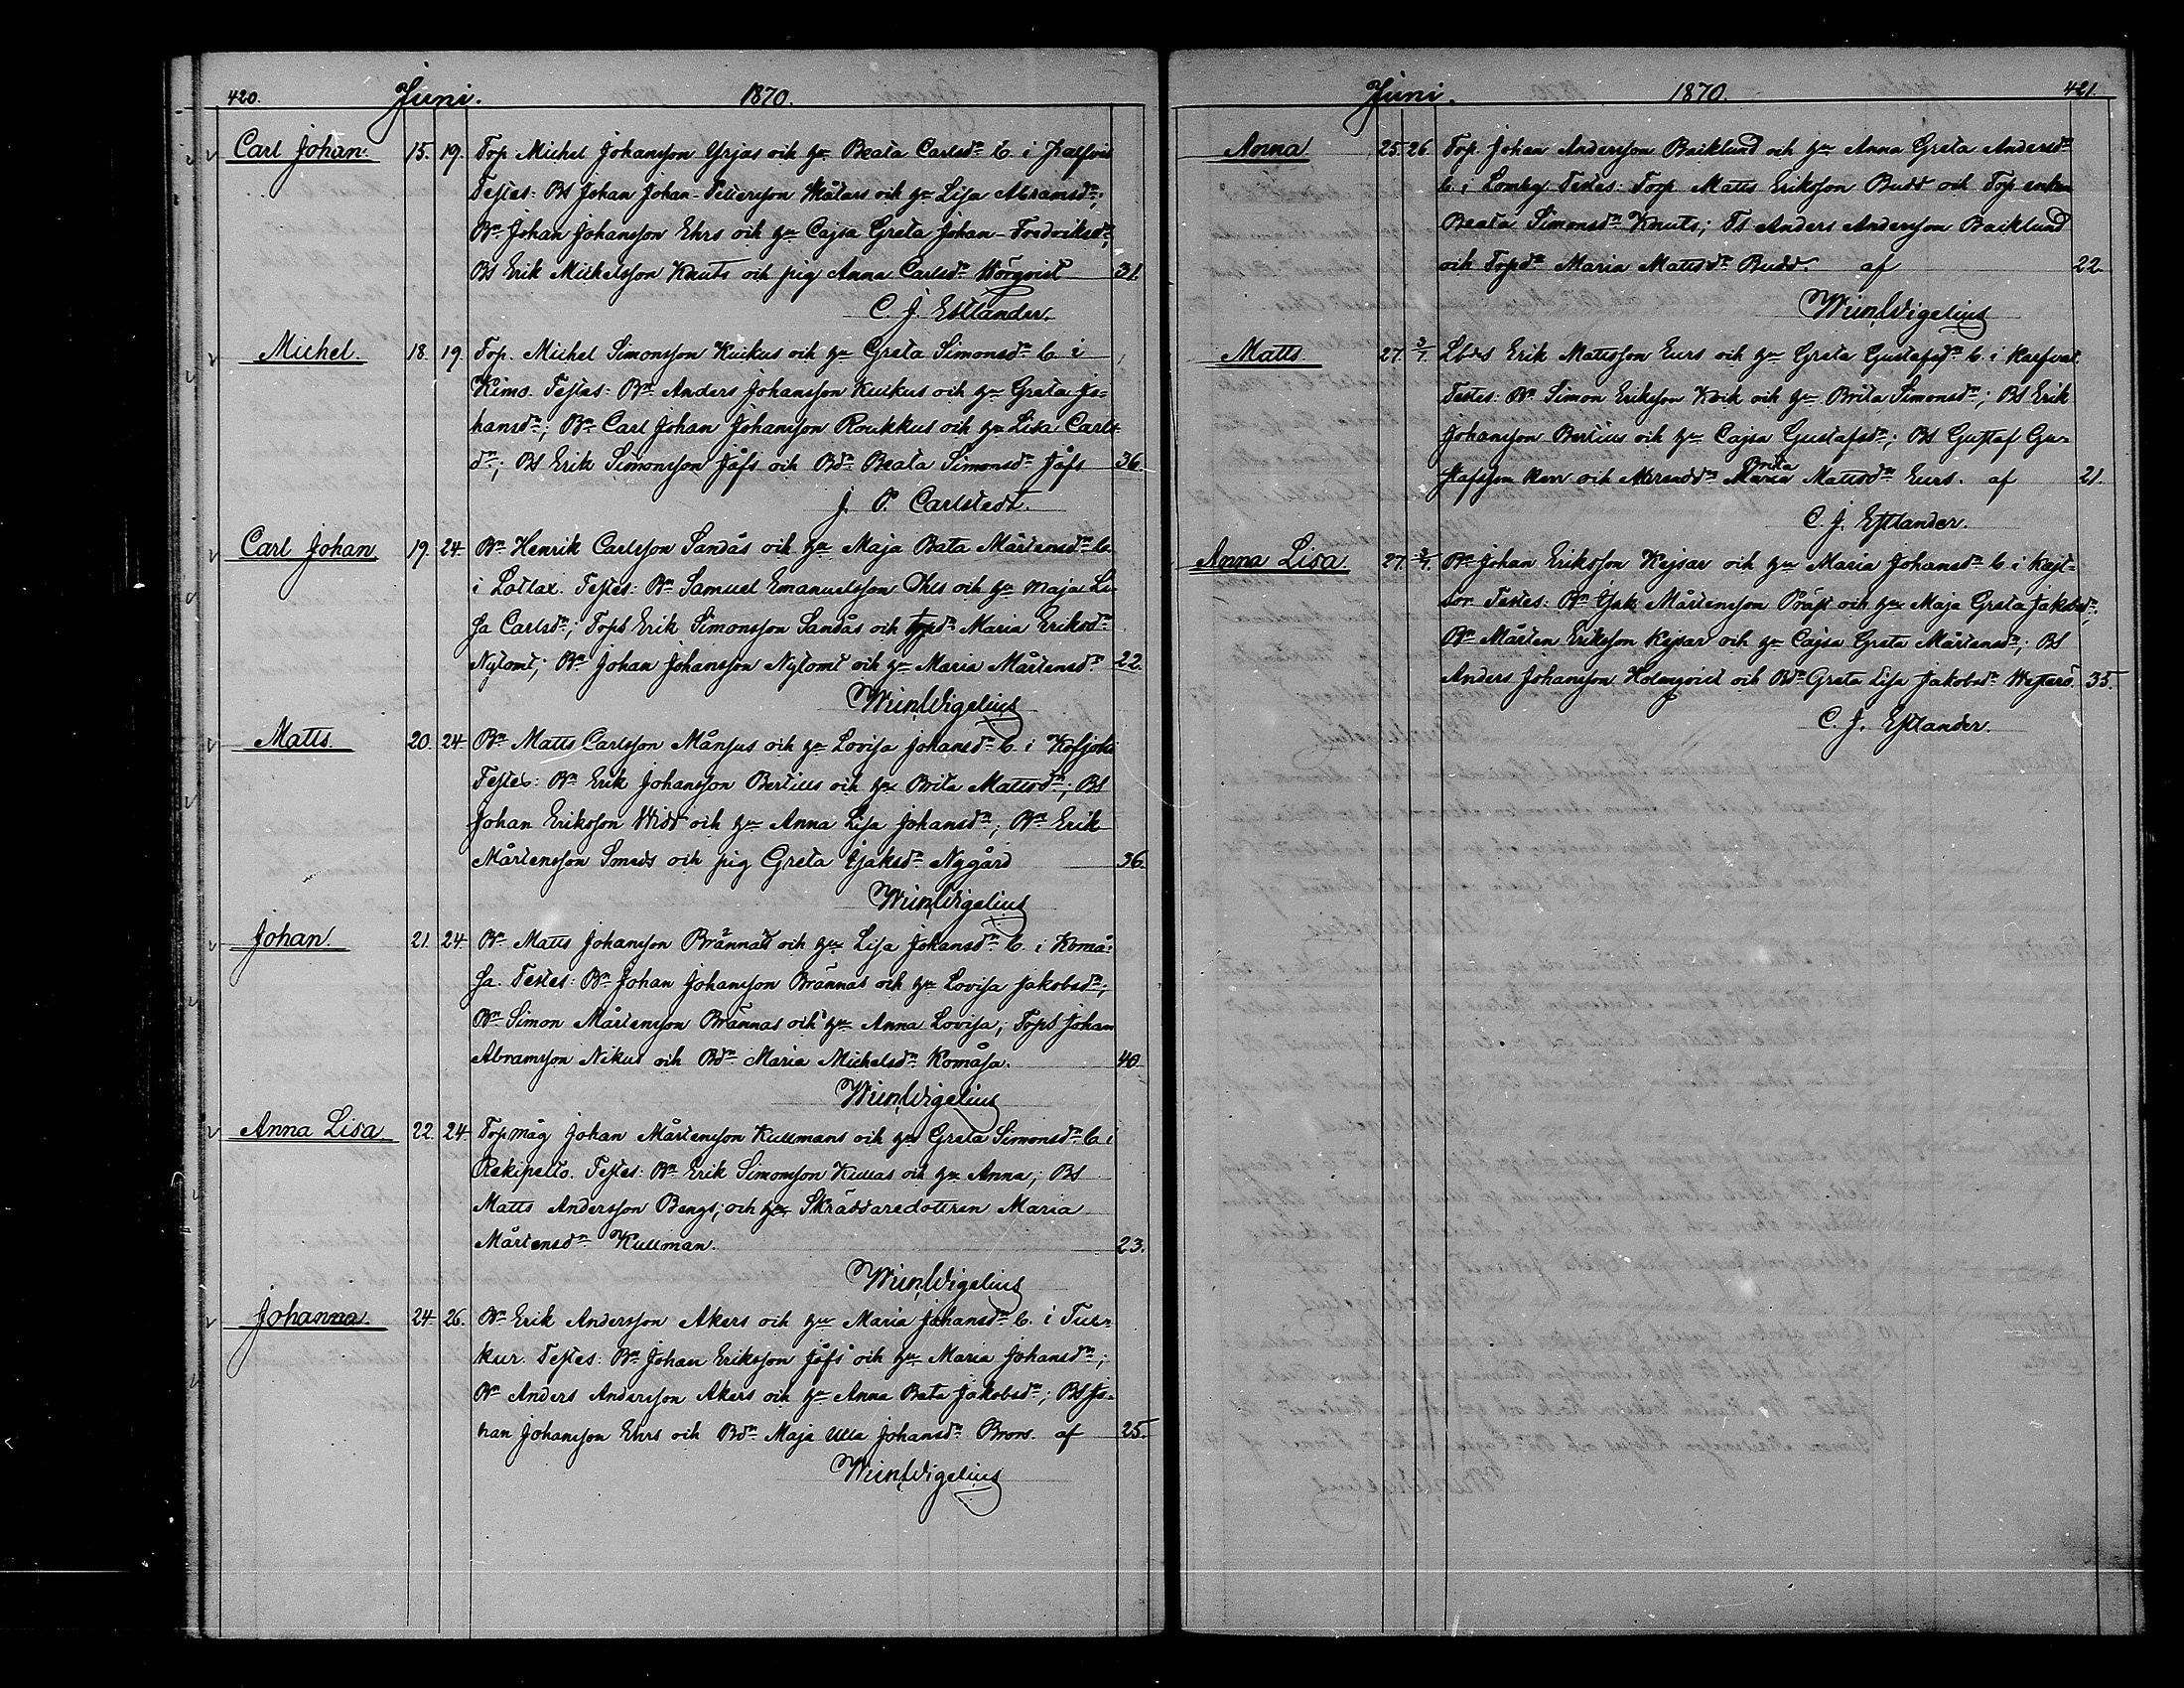 420. Juni. 1870.
Carl Johan. 15. 19. Torp Michel Johansson Yrjas och hu Beata Carlsdr b. i Kalfvist
Testes: Bs Johan Johan-Pettersson Mådars och hu Lisa Abramsdr;
Bn Johan Johansson Ehrs och hu Cajsa Greta Johan-Fredriksdr;
Bs Erik Mickelsson Knuts och pig Anna Carlsdr Hörqvist 31.
C. J. Estlander.
Michel. 18. 19. Torp. Michel Simonsson Kuikus och hu Greta Simonsdr b. i
Kimo. Testes: Bn Anders Johansson Kuikus och hu Greta Jo=
hansdr; Bn Carl Johan Johansson Roukkus och hu Lisa Carls=
dr; Bs Erik Simonsson Jåfs och Bdr Beata Simonsdr Jåfs 36.
J. P. Carlstedt.
Carl Johan 19. 24. Bn Henrik Carlsson Sandås och hu Maja Bata Mårtensdr b.
i Lottax. Testes: Bn Samuel Emanuelsson Ohls och hu Maja Li-
sa Carlsdr; Tops Erik Simonsson Sandås och topdr Maria Eriksdr
Nytomt; Bn Johan Johansson Nytomt och hu Maria Mårtensdr 22.
Wilh. Wigelius
Matts. 20. 24. Bn Matts Carlsson Månsus och hu Lovisa Johansdr b. i Kosjoki
Testes: Bn Erik Johansson Bertills och hu Brita Mattsdr; Bs
Johan Eriksson Widd och hu Anna Lisa Johansdr; Bn Erik
Mårtensson Smeds och pig Greta Isaksdr Nygård 36.
Wilh. Wigelius
Johan. 21. 24. Bn Matts Johansson Brännas och hu Lisa Johansdr b. i Komå=
sa. Testes: Bn Johan Johansson Brännas och hu Lovisa Jakobsdr;
Bn Simon Mårtensson Brännas och hu Anna Lovisa; Tops Johan
Abramsson Nikus och Bdr Maria Mickelsdr Komåsa. 40.
Wilh. Wigelius
Anna Lisa 22. 24. Top måg Johan Mårtensson Kullmans och hu Greta Simonsdr b. i
Rekipelto. Testes: Bn Erik Simonsson Killas och hu Anna; Bs
Matts Andersson Bengs; och hu Skräddaredottren Maria
Mårtensdr Kullman. 23.
Wilh. Wigelius
Johanna. 24. 26. Bn Erik Andersson Akers och hu Maria Johansdr b. i Tuc-
kur. Testes: Bn Johan Eriksson Jåfs och hu Maria Johansdr;
Bn Anders Andersson Akers och hu Anna Bata Jakobsdr; Bs Jo-
han Johansson Ehrs och Bdr Maja Ulla Johansdr Brors. af 25.
Wilh. Wigelius
Juni. 1870. 421.
Anna 25. 26. Torp. Johan Andersson Backlund och hu Anna Greta Andersdr
b. i Lomby. Testes: Torp. Matts Eriksson Budd och Torp enkan
Beata Simonsdr Knuts; Ts Anders Andersson Backlund
och Topdr Maria Mattsdr Budd. af 22.
Wilh. Wigelius
Matts. 27. 3/7. Lbds Erik Mattsson Eurs och hu Greta Gustafsdr b. i Karfvat.
Testes: Bn Simon Eriksson Kvik och hu Brita Simonsdr; Bs Erik
Johansson Bertius och hu Cajsa Gustafsdr; Bs Gustaf Gu-
stafsson och Maria Brita Mattsdr Eurs. af 21.
C. J. Estlander.
Anna Lisa. 27. 3/7. Bn Johan Eriksson Kejsar och hu Maria Johansdr b. i Kejt=
tor Testes: Bn Isak Mårtensson Påust och hu Maja Greta Jakobsdr;
Bn Mårten Eriksson Kejsar och hu Cajsa Greta Mårtensdr; Bs
Anders Johansson Holmqvist och Bdr Greta Lisa Jakobsdr Westerö. 35.
C. J. Estlander.